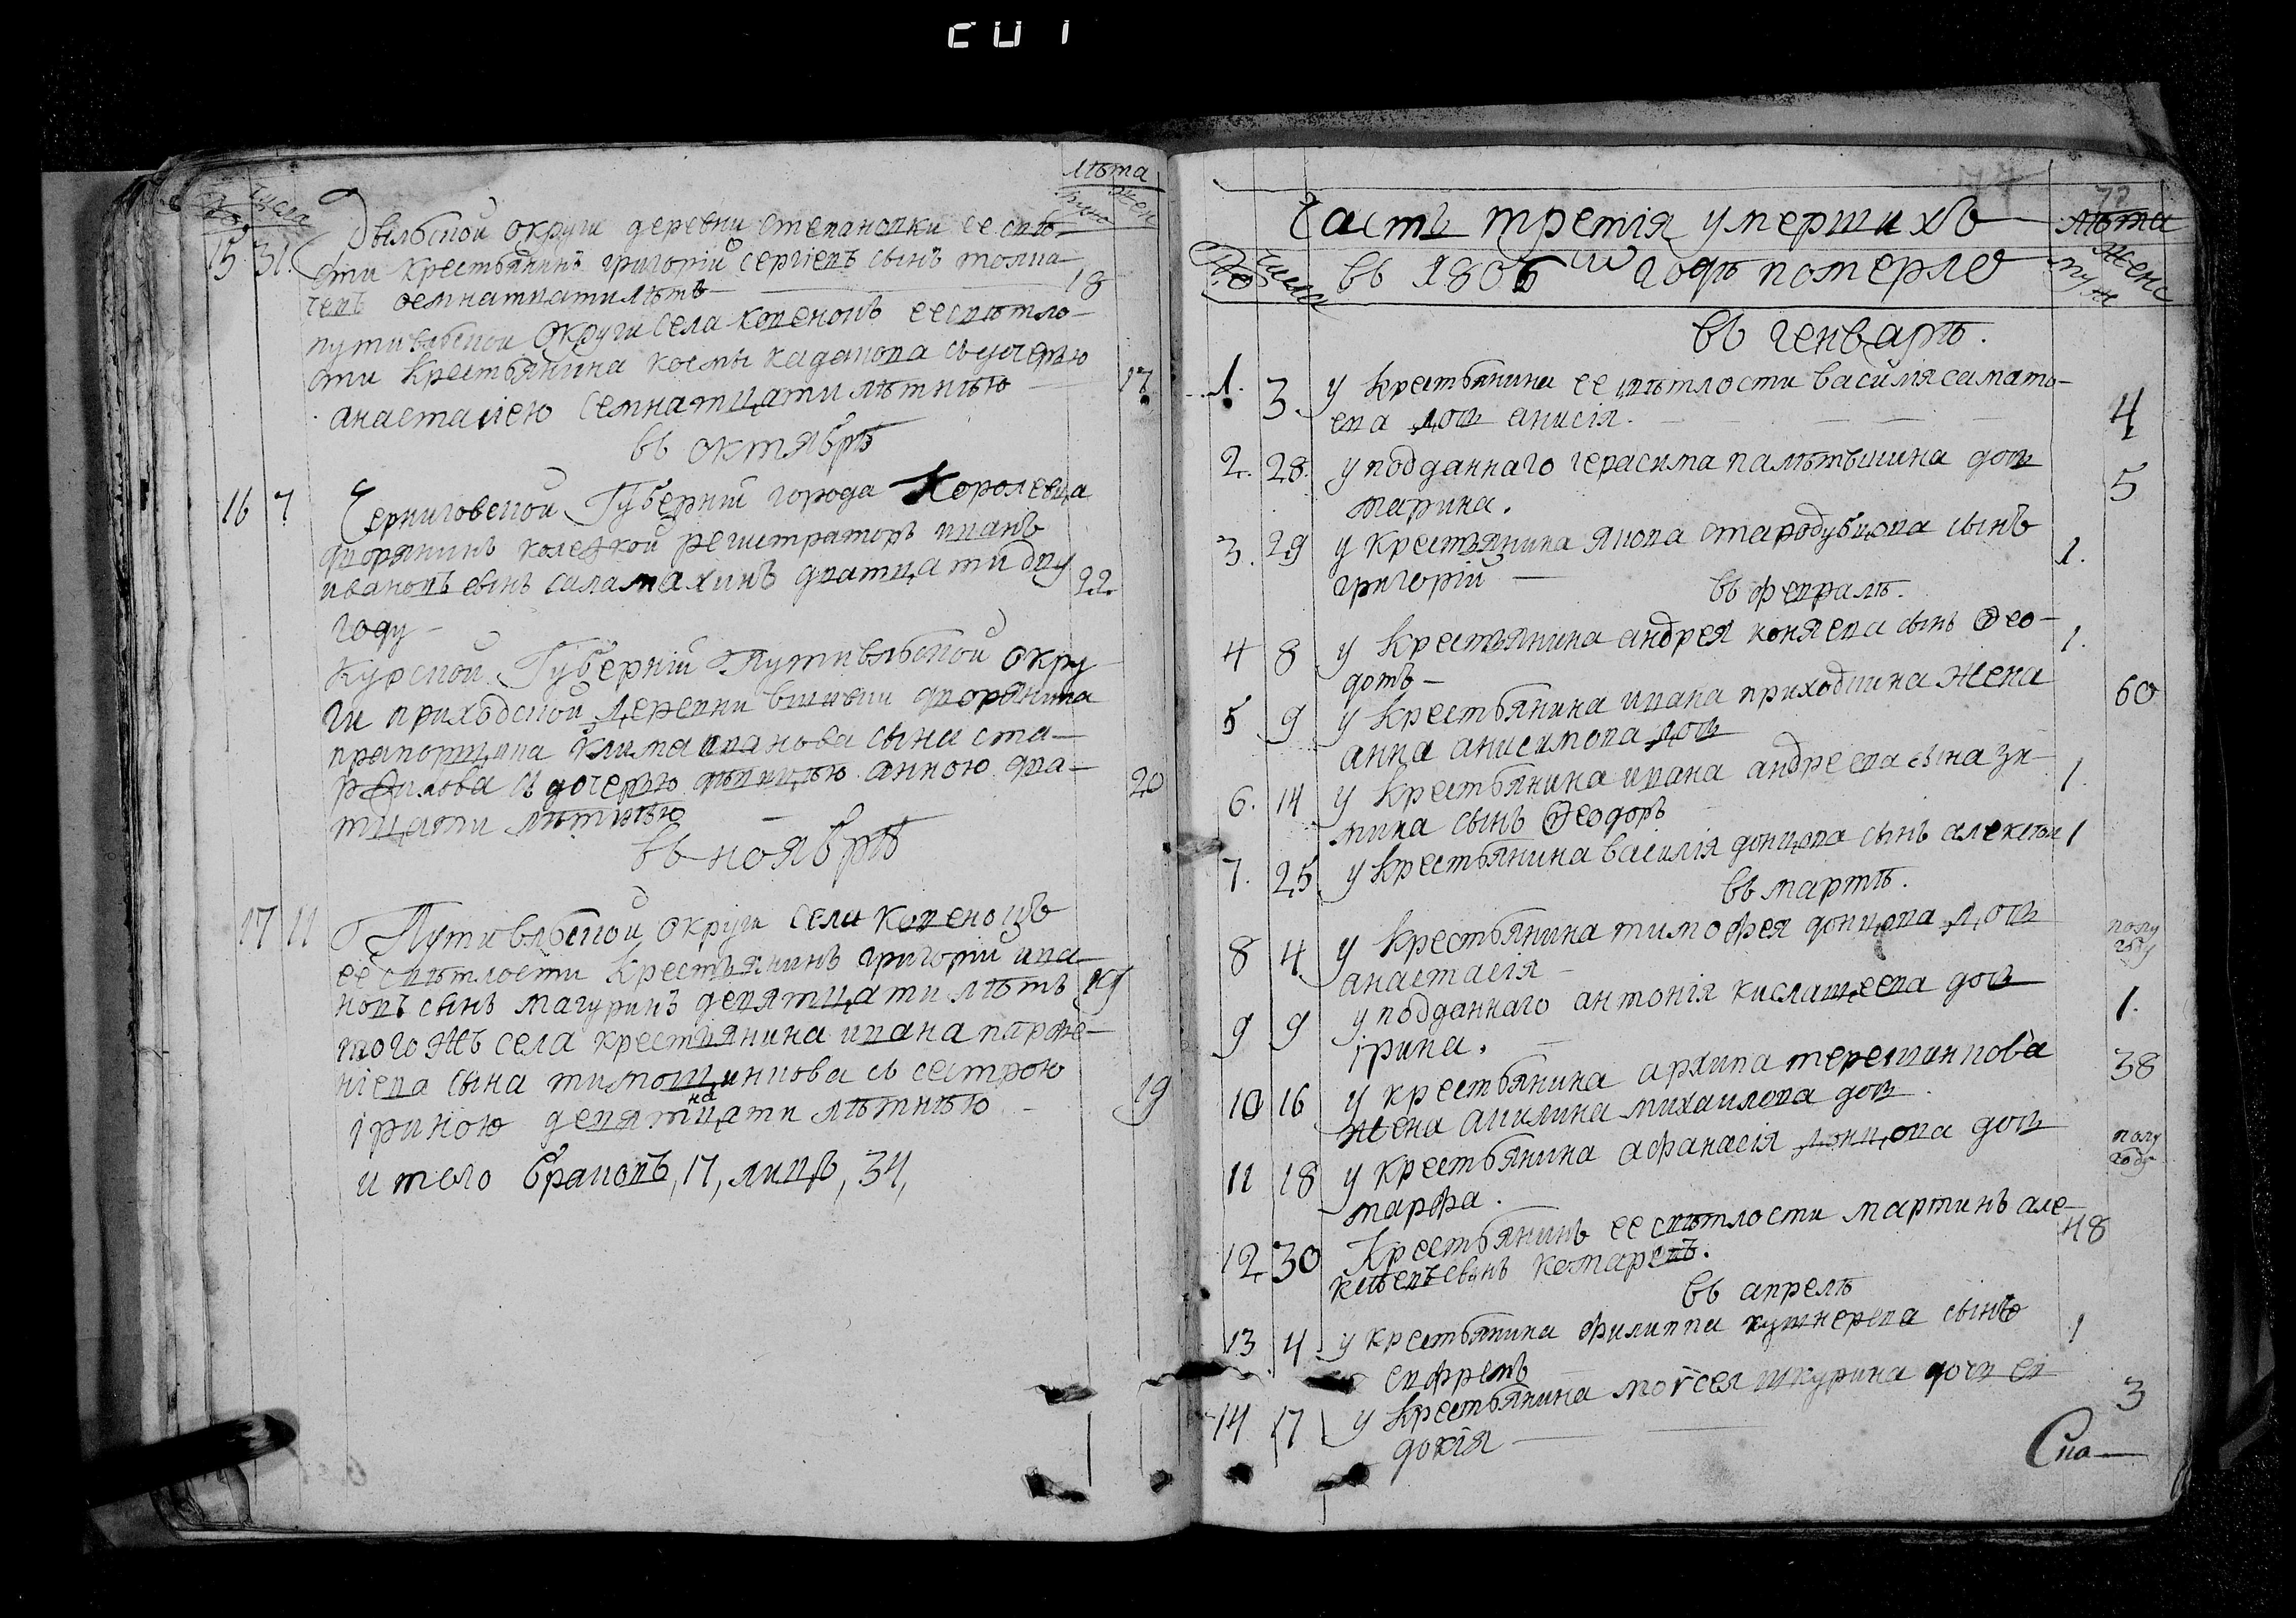 числа
лѣта
жен
15 31. Дьвльской округи деревни степановки ее свѣ-
сти крестьянинъ григорій сергіевъ сынъ толма-
чевъ осмнатцати лѣтъ 18
путивльской округи села копенокъ ее свѣтло-
сти крестьянина космы
анастасіею семнатцати лѣтнѣю 17
въ октябрѣ
16 7 Черниговской Губерніи города Королевца
дворянинъ колежкой регистраторъ иванъ
ивановъ сынъ саламахинъ двятцати дву 22
году
Курской Губерніи Путивльской окру
ги приходской деревни дворянина
прапорщика клима иванова сына ста-
съ дочерью дѣвицею анною два- 20
тцати лѣтнѣю
въ ноябрѣ
17 11 Путивльской округи села копенокъ
ее свѣтлости крестьянинъ григорій ива
новъ сынъ магуринъ девятцати лѣтъ
того жъ села крестьянина ивана парфе-
ніева сына тимощинкова съ сестрою
іриною девятнатцати лѣтнѣю 19
и того браковъ, 17, лицъ, 34,
72
Часть третія умершихъ лѣта
числа въ 1806 годѣ померло муж женс
въ генварѣ.
1. 3. у крестьянина ее свѣтлости василія самать-
ева дочь анисія. 4
2. 28. у подданнаго герасима дочь
марина. 5
3. 29 у крестьянина якова стародубцова сынъ
григорій 1.
въ февралѣ.
4 8 у крестьянина андрея коняева сынъ Ѳео-
дотъ 1.
5 9 у крестьянина ивана приходкина жена
анна анисимова дочь 60
6. 14 у крестьянина ивана андреева сына зи-
мина сынъ Ѳеодоръ 1.
7. 25 у крестьянина василія донцова сынъ алексѣй 1
въ мартѣ.
8 4 у крестьянина тимофея донцова дочь полу
анастасія году
9 9 у подданнаго антонія дочь
ірина. 1.
10 16 у крестьянина архипа терешинкова
жена акилина михаилова дочь 38
11 18 у крестьянина афанасія донцова дочь полу
марфа. году
12 30 Крестьянинъ ее свѣтлости мартинъ але-
ксѣевъ сынъ комаревъ. 48
въ апрелѣ
13 4 у крестьянина филиппа кушнерева сынъ
ефремъ 1
14 17 у крестьянина моисея шкурина дочь ев
докія 3